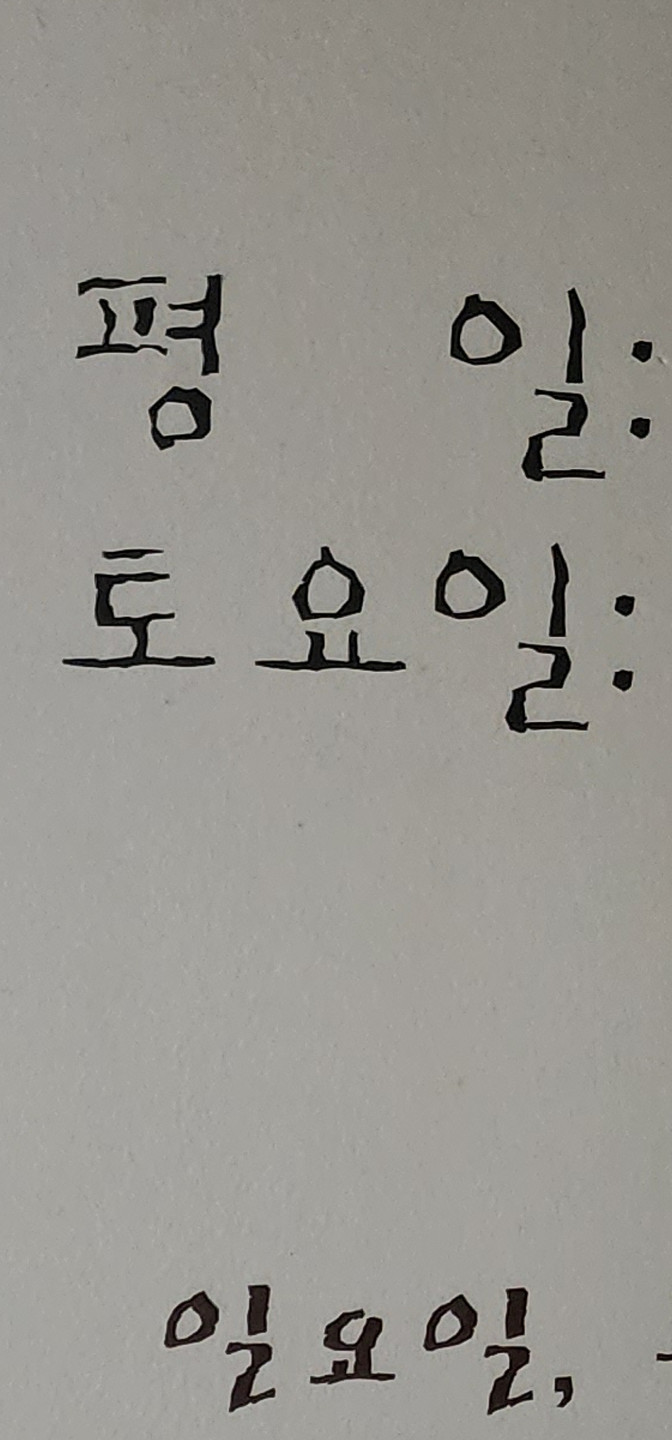 평 일:
토요일:
일요일,